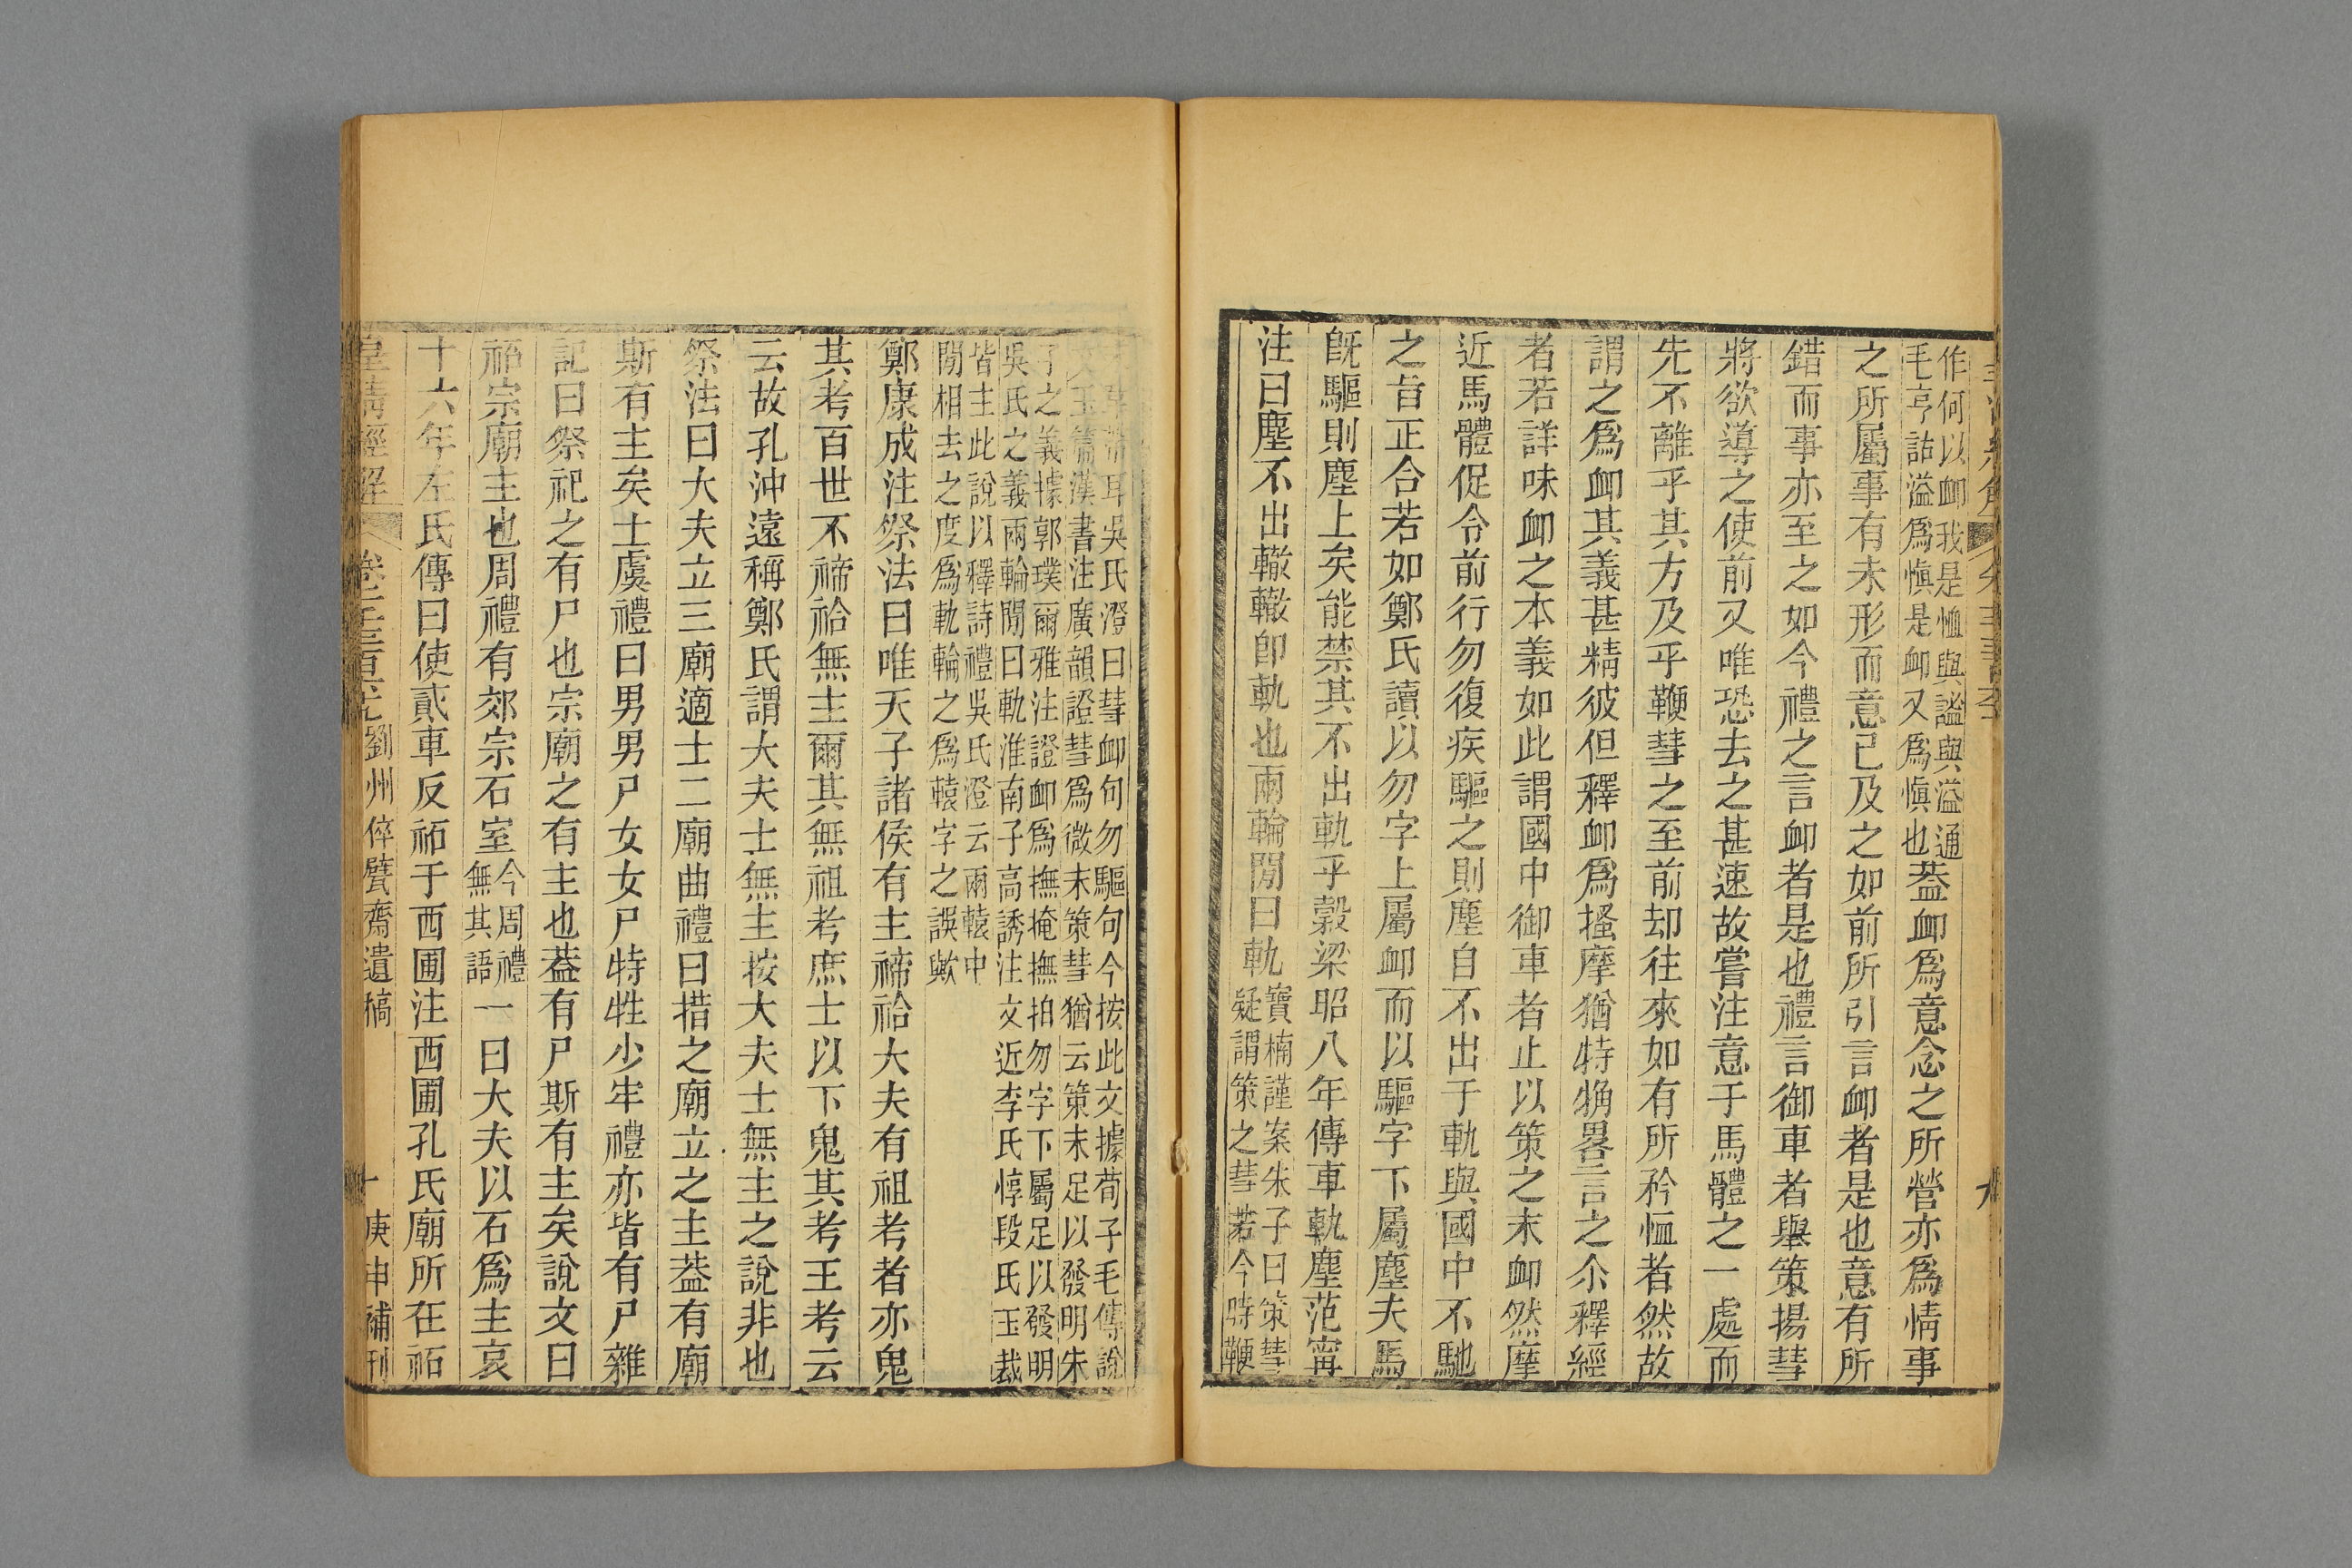 作何以卹我是恤與謐與溢通
毛亨詁溢爲愼是卹又爲愼也葢卹爲意念之所營亦爲情事
之所屬事有未形而意已及之如前所引言卹者是也意有所
錯而事亦至之如今禮之言卹者是也禮言御車者舉策揚彗
將欲導之使前又唯恐去之甚速故嘗注意于馬體之一處而
先不離乎其方及乎鞭彗之至前却往來如有所矜恤者然故
謂之爲卹其義甚精彼但釋卹爲搔摩猶特觕畧言之尒釋經
者若詳味卹之本義如此謂國中御車者止以策之末卹然摩
近馬體促令前行勿復疾驅之則塵自不出于軌與國中不馳
之旨正合若如鄭氏讀以勿字上屬卹而以驅字下屬塵夫馬
旣驅則塵上矣能禁其不出軌乎穀梁昭八年傳車軌塵范甯
注曰塵不出轍轍卽軌也兩輪閒曰軌
寶楠謹案朱子曰策彗
疑謂策之彗若今時鞭
耳吳氏澄曰彗卹句勿驅句今按此文據荀子毛傳說
玉篇漢書注廣韻證彗爲微末策彗猶云策末足以發明朱
子之義據郭璞爾雅注證卹爲撫掩撫拍勿字下屬足以發明
吳氏之義兩輪閒曰軌淮南子高誘注文近李氏惇段氏玉裁
皆主此說以釋詩禮吳氏澄云兩轅中
閒相去之度爲軌輪之爲轅字之誤歟
鄭康成注祭法曰唯天子諸侯有主禘祫大夫有祖考者亦鬼
其考百世不禘祫無主爾其無祖考庶士以下鬼其考王考云
云故孔沖遠稱鄭氏謂大夫士無主按大夫士無主之說非也
祭法曰大夫立三廟適士二廟曲禮曰措之廟立之主葢有廟
斯有主矣士虞禮曰男男尸女女尸特牲少牢禮亦皆有尸雜
記曰祭祀之有尸也宗廟之有主也葢有尸斯有主矣說文曰
祏宗廟主也周禮有郊宗石室
今周禮
無其語
一曰大夫以石爲主哀
十六年左氏傳曰使貳車反祏于西圃注西圃孔氏廟所在祏
皇淸經解
劉州倅甓齋遺稿
庚申補刊